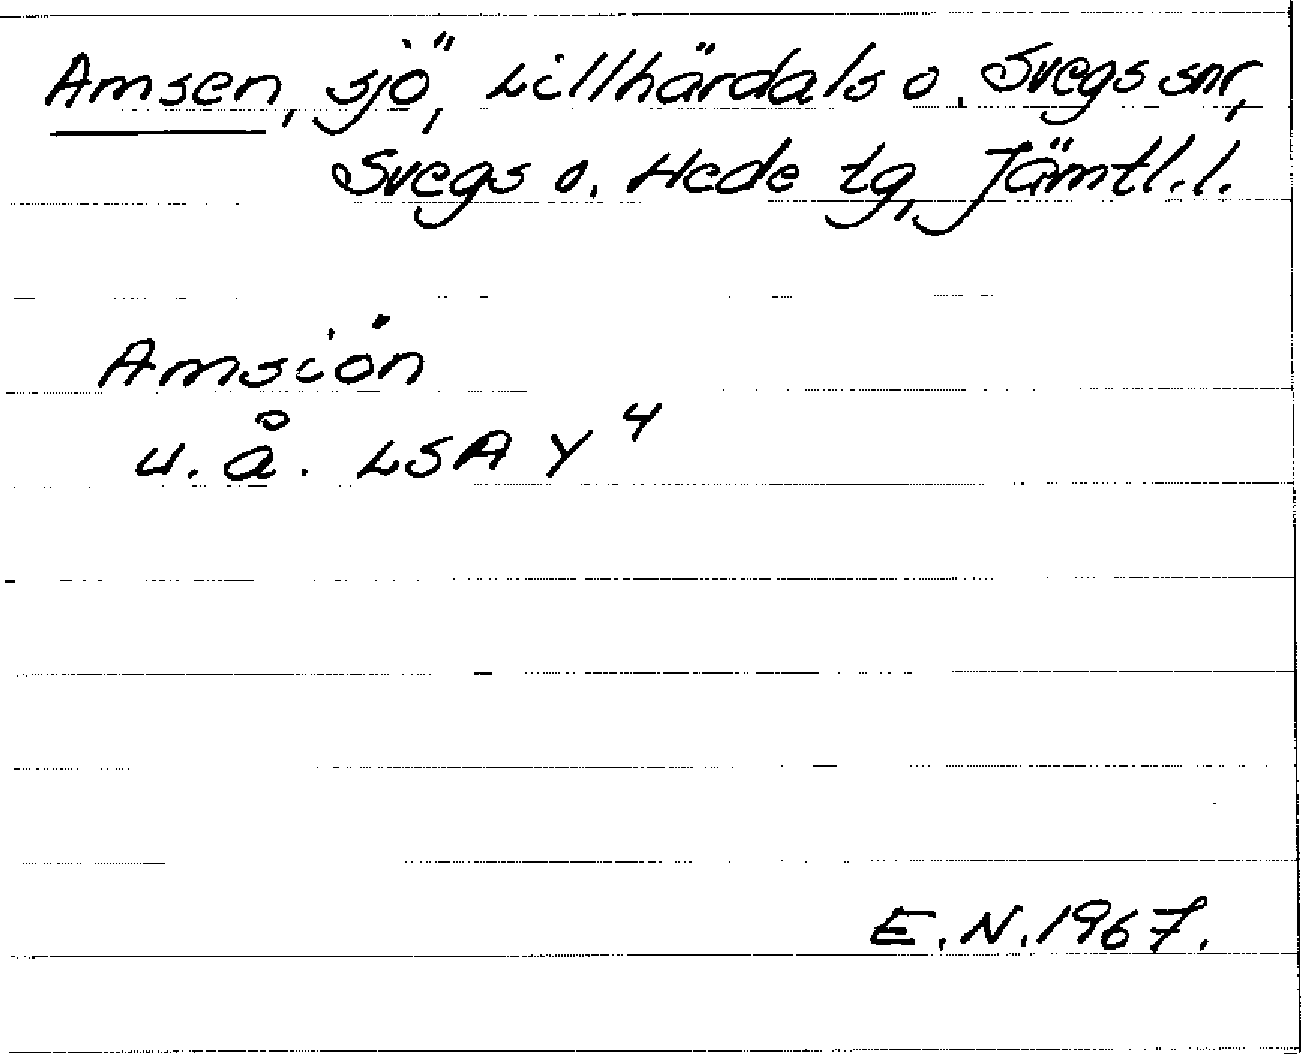 Amsen, sjö, Lillhärdals o. Svegs snr,
Svegs o. Hede tg, Jämtl. l.
Amsiön
u. å. LSA Y 4
E. N. 1967.